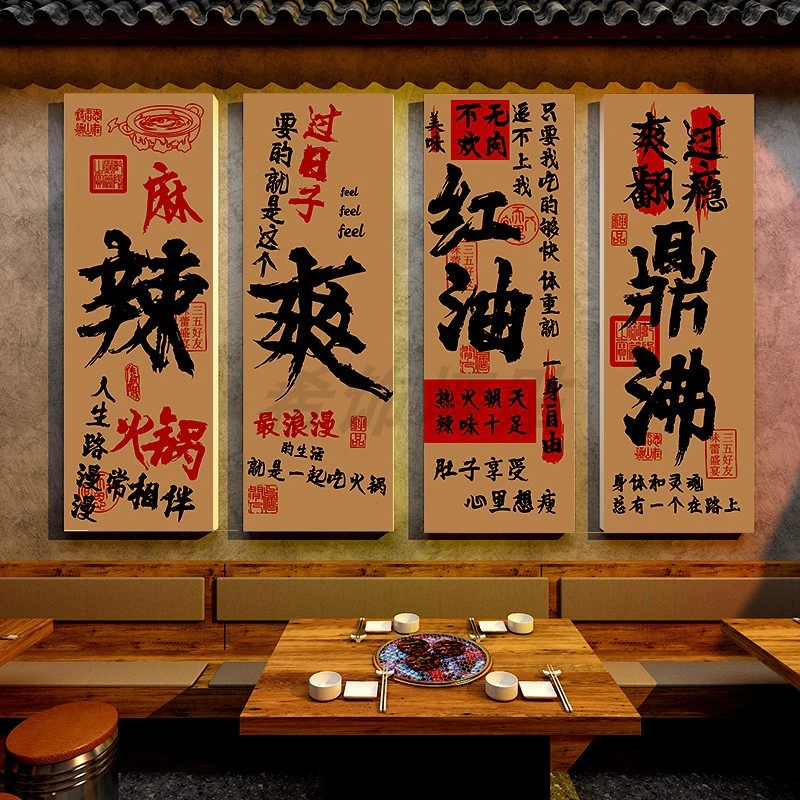 麻
辣
三五好友
味蕾盛宴
火锅
人生路漫漫
常相伴
过日子
要的就是这个
feel
feel
feel
爽
最浪漫
的生活
就是一起吃火锅
美味
无肉
不欢
只要我吃的够快 体重就
追不上我
红油
三五好友
味蕾盛宴
一身自由
热火朝天
辣味十足
肚子享受
心里想瘦
过瘾
爽翻
鼎沸
三五好友
味蕾盛宴
身体和灵魂
总有一个在路上